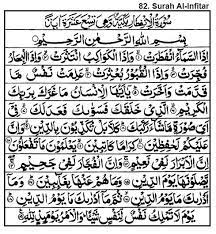 82. Surah Al-Infitar
سُوْرَةُ الْاِنْفِطَارِ مَكِّيَّةٌ وَّهِيَ تِسْعَ عَشْرَةَ اٰيَةً
بِسْمِ اللّٰهِ الرَّحْمٰنِ الرَّحِيْمِ
اِذَا السَّمَآءُ انْفَطَرَتْ وَاِذَا الْكَوَاكِبُ انْتَثَرَتْ وَاِذَا الْبِحَارُ
فُجِّرَتْ وَاِذَا الْقُبُوْرُ بُعْثِرَتْ عَلِمَتْ نَفْسٌ مَّا
قَدَّمَتْ وَاَخَّرَتْ يٰٓاَيُّهَا الْاِنْسَانُ مَا غَرَّكَ بِرَبِّكَ
الْكَرِيْمِ الَّذِيْ خَلَقَكَ فَسَوّٰىكَ فَعَدَلَكَ فِيْٓ
اَيِّ صُوْرَةٍ مَّا شَآءَ رَكَّبَكَ كَلَّا بَلْ تُكَذِّبُوْنَ بِالدِّيْنِ
وَاِنَّ عَلَيْكُمْ لَحٰفِظِيْنَ كِرَامًا كَاتِبِيْنَ يَعْلَمُوْنَ مَا تَفْعَلُوْنَ
اِنَّ الْاَبْرَارَ لَفِيْ نَعِيْمٍ وَاِنَّ الْفُجَّارَ لَفِيْ جَحِيْمٍ
يَّصْلَوْنَهَا يَوْمَ الدِّيْنِ وَمَا هُمْ عَنْهَا بِغَآئِبِيْنَ وَمَآ
اَدْرٰىكَ مَا يَوْمُ الدِّيْنِ ثُمَّ مَآ اَدْرٰىكَ مَا يَوْمُ الدِّيْنِ
يَوْمَ لَا تَمْلِكُ نَفْسٌ لِّنَفْسٍ شَيْئًا وَالْاَمْرُ يَوْمَئِذٍ لِّلّٰهِ